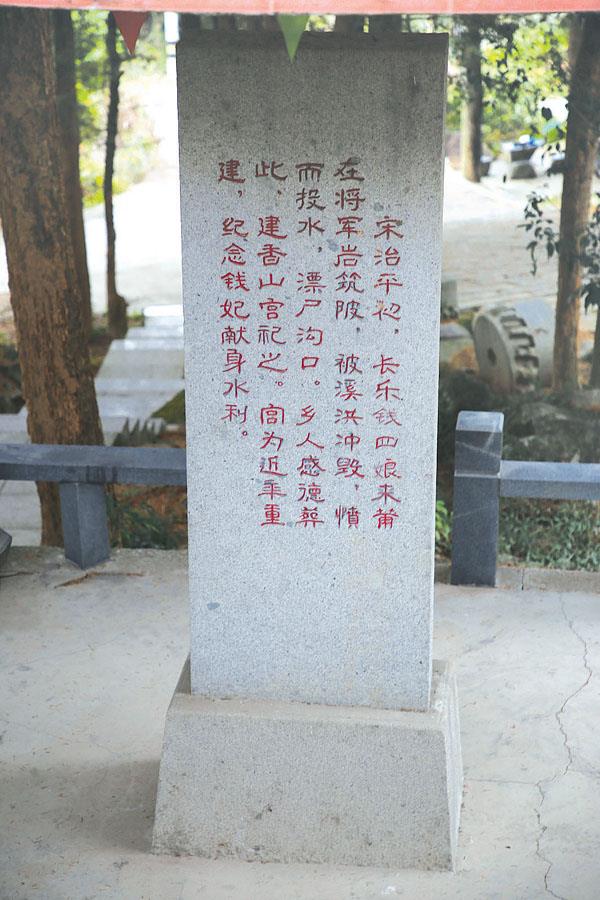 宋治平初，长乐钱四娘来莆
在将军岩筑陂，被溪洪冲毁，愤
而投水，漂尸沟口。乡人感德葬
此，建香山宫祀之。宫为近年重
建，纪念钱妃献身水利。